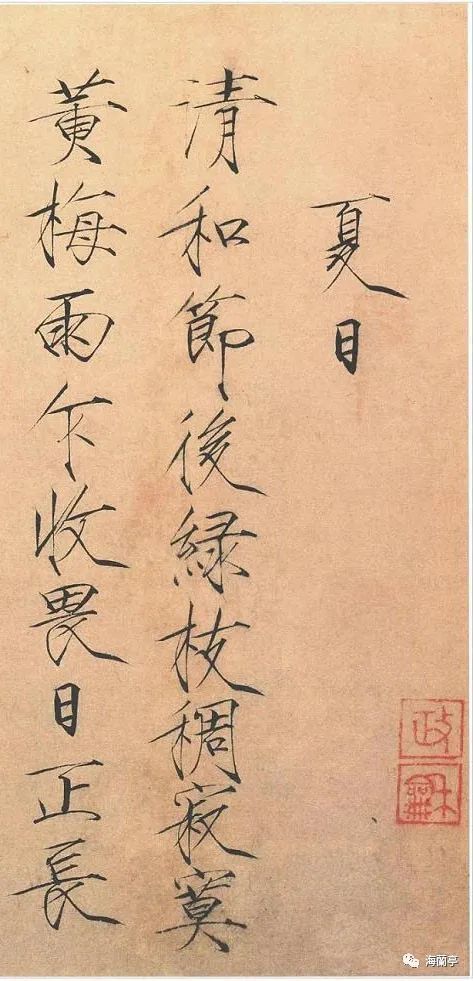 夏日
清和節後緑枝稠寂寞
黄梅雨乍收畏日正長
政龢
海蘭亭